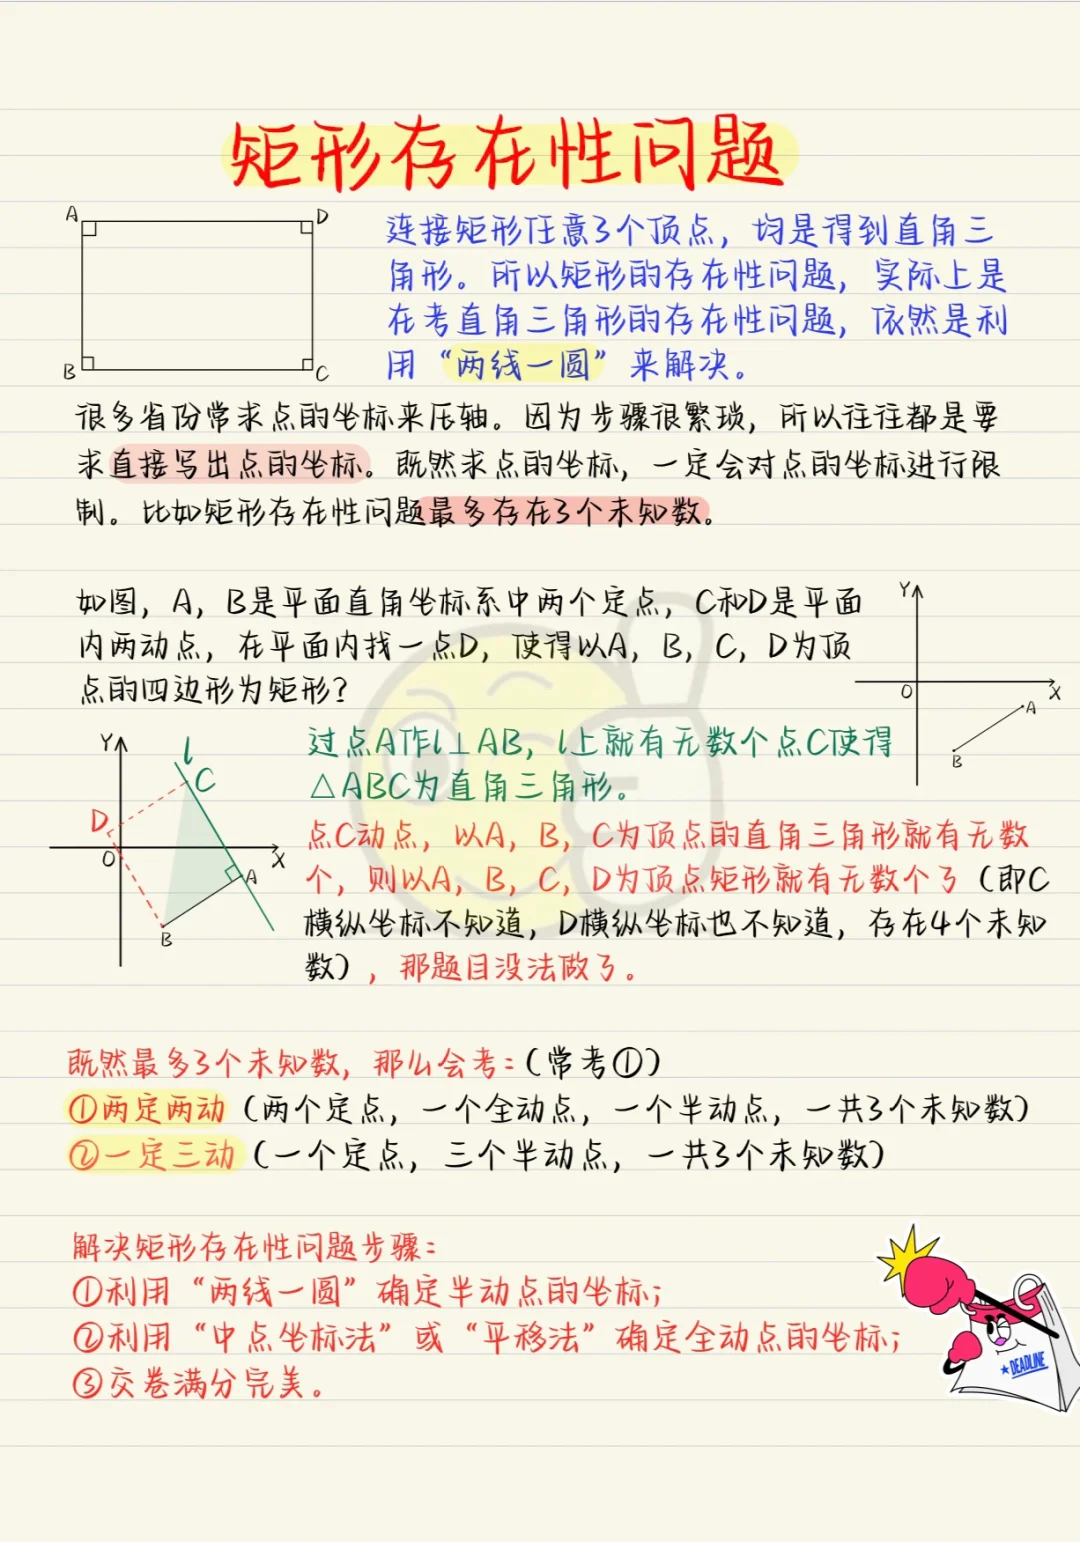 矩形存在性问题
A
D
B
C
连接矩形任意3个顶点，均是得到直角三
角形。所以矩形的存在性问题，实际上是
在考直角三角形的存在性问题，依然是利
用“两线一圆”来解决。
很多省份常求点的坐标来压轴。因为步骤很繁琐，所以往往都是要
求直接写出点的坐标。既然求点的坐标，一定会对点的坐标进行限
制。比如矩形存在性问题最多存在3个未知数。
如图，A，B是平面直角坐标系中两个定点，C和D是平面
内两动点，在平面内找一点D，使得以A，B，C，D为顶
点的四边形为矩形？
Y
O
X
A
B
过点A作l⊥AB，l上就有无数个点C使得
△ABC为直角三角形。
Y
l
C
D
O
X
A
B
点C动点，以A，B，C为顶点的直角三角形就有无数
个，则以A，B，C，D为顶点矩形就有无数个了（即C
横纵坐标不知道，D横纵坐标也不知道，存在4个未知
数），那题目没法做了。
既然最多3个未知数，那么会考：（常考①）
①两定两动（两个定点，一个全动点，一个半动点，一共3个未知数）
②一定三动（一个定点，三个半动点，一共3个未知数）
解决矩形存在性问题步骤：
①利用“两线一圆”确定半动点的坐标；
②利用“中点坐标法”或“平移法”确定全动点的坐标；
③交卷满分完美。
★DEADLINE